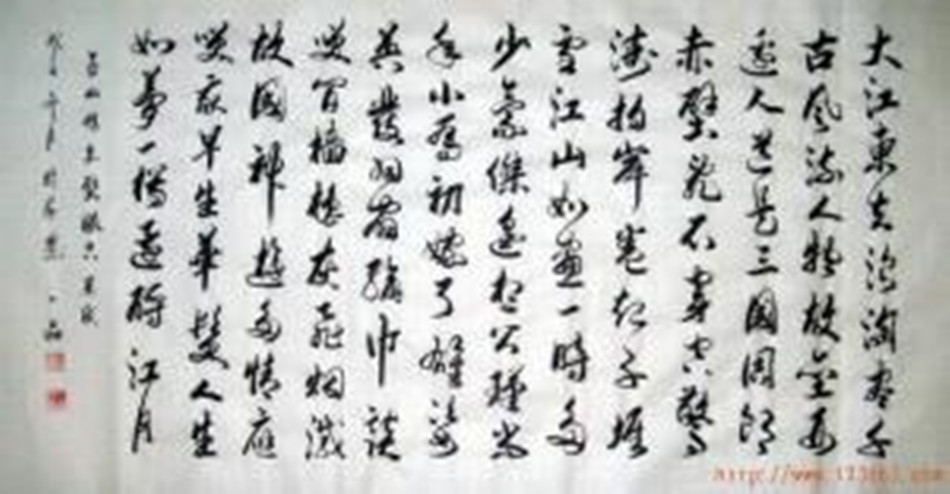 大江東去浪淘盡千
古風流人物故壘西
邊人道是三國周郎
赤壁亂石穿空驚
濤拍岸卷起千堆
雪江山如畫一時多
少豪傑遙想公瑾當
年小喬初嫁了雄姿
英發羽扇綸巾談
笑間檣櫓灰飛煙滅
故國神遊多情應
笑我早生華髮人生
如夢一樽還酹江月